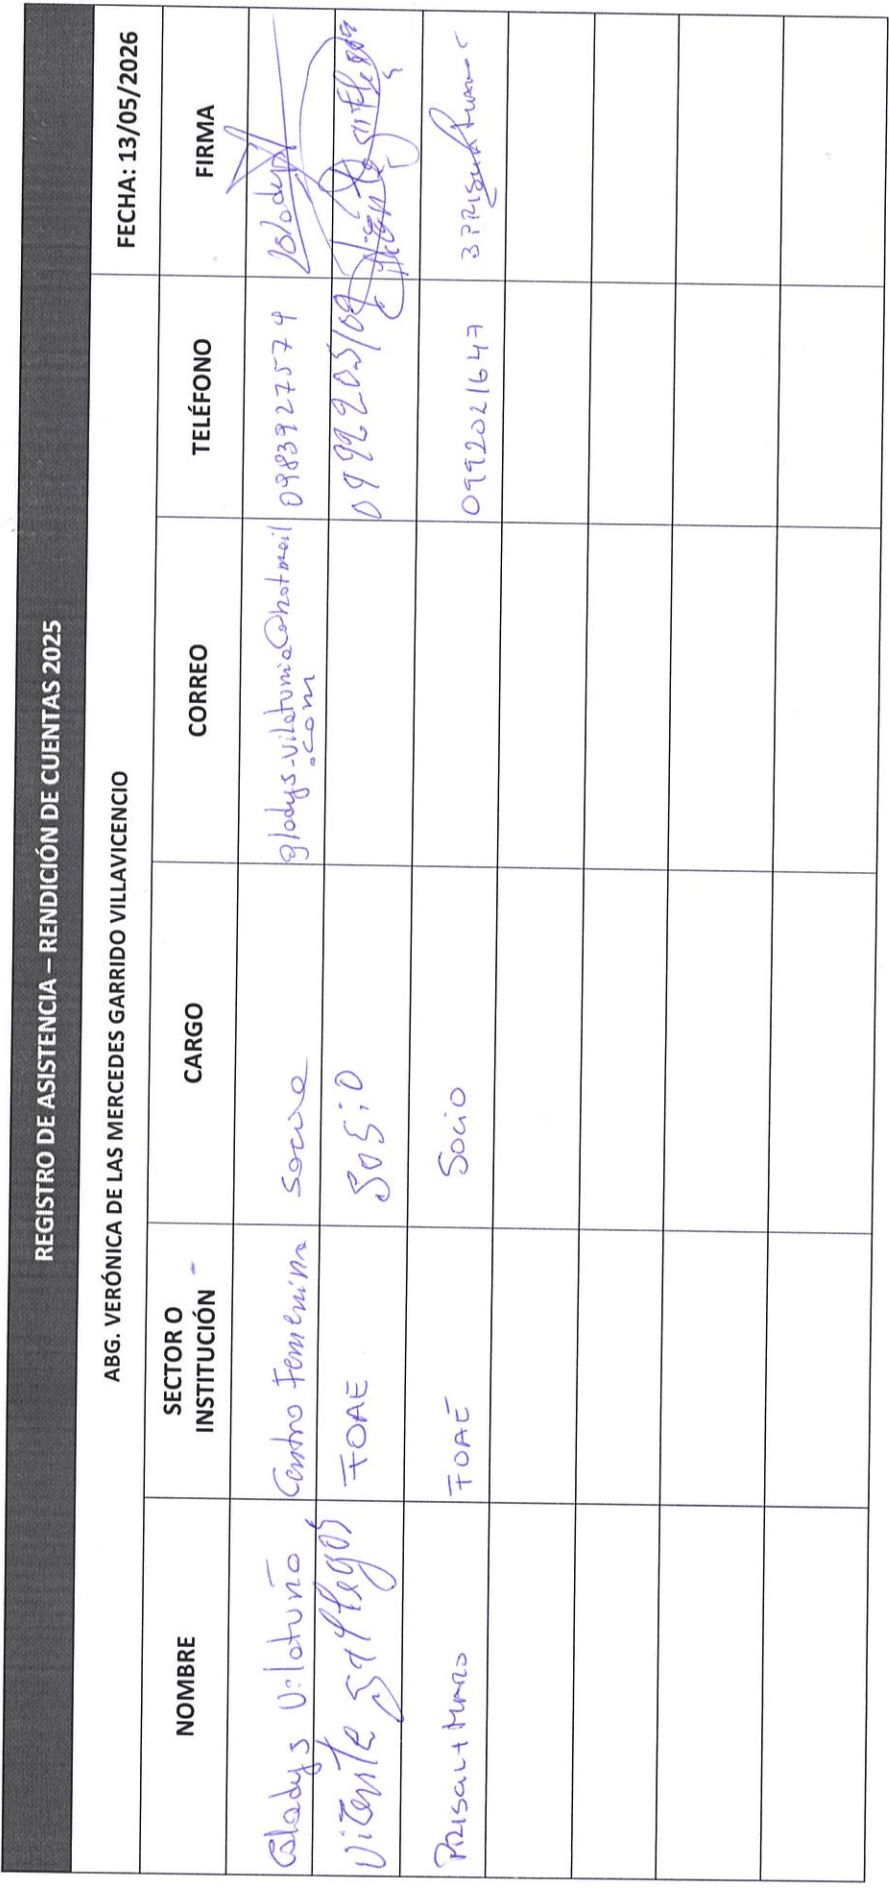 REGISTRO DE ASISTENCIA – RENDICIÓN DE CUENTAS 2025
ABG. VERÓNICA DE LAS MERCEDES GARRIDO VILLAVICENCIO FECHA: 13/05/2026
NOMBRE SECTOR O INSTITUCIÓN CARGO CORREO TELÉFONO FIRMA
Gladys Vilatuña Centro Femenino Socia gladys-vilatunia@hotmail.com 0983927574 Gladys
Vicente FOAE Sosio
FOAE Socio 0992021647